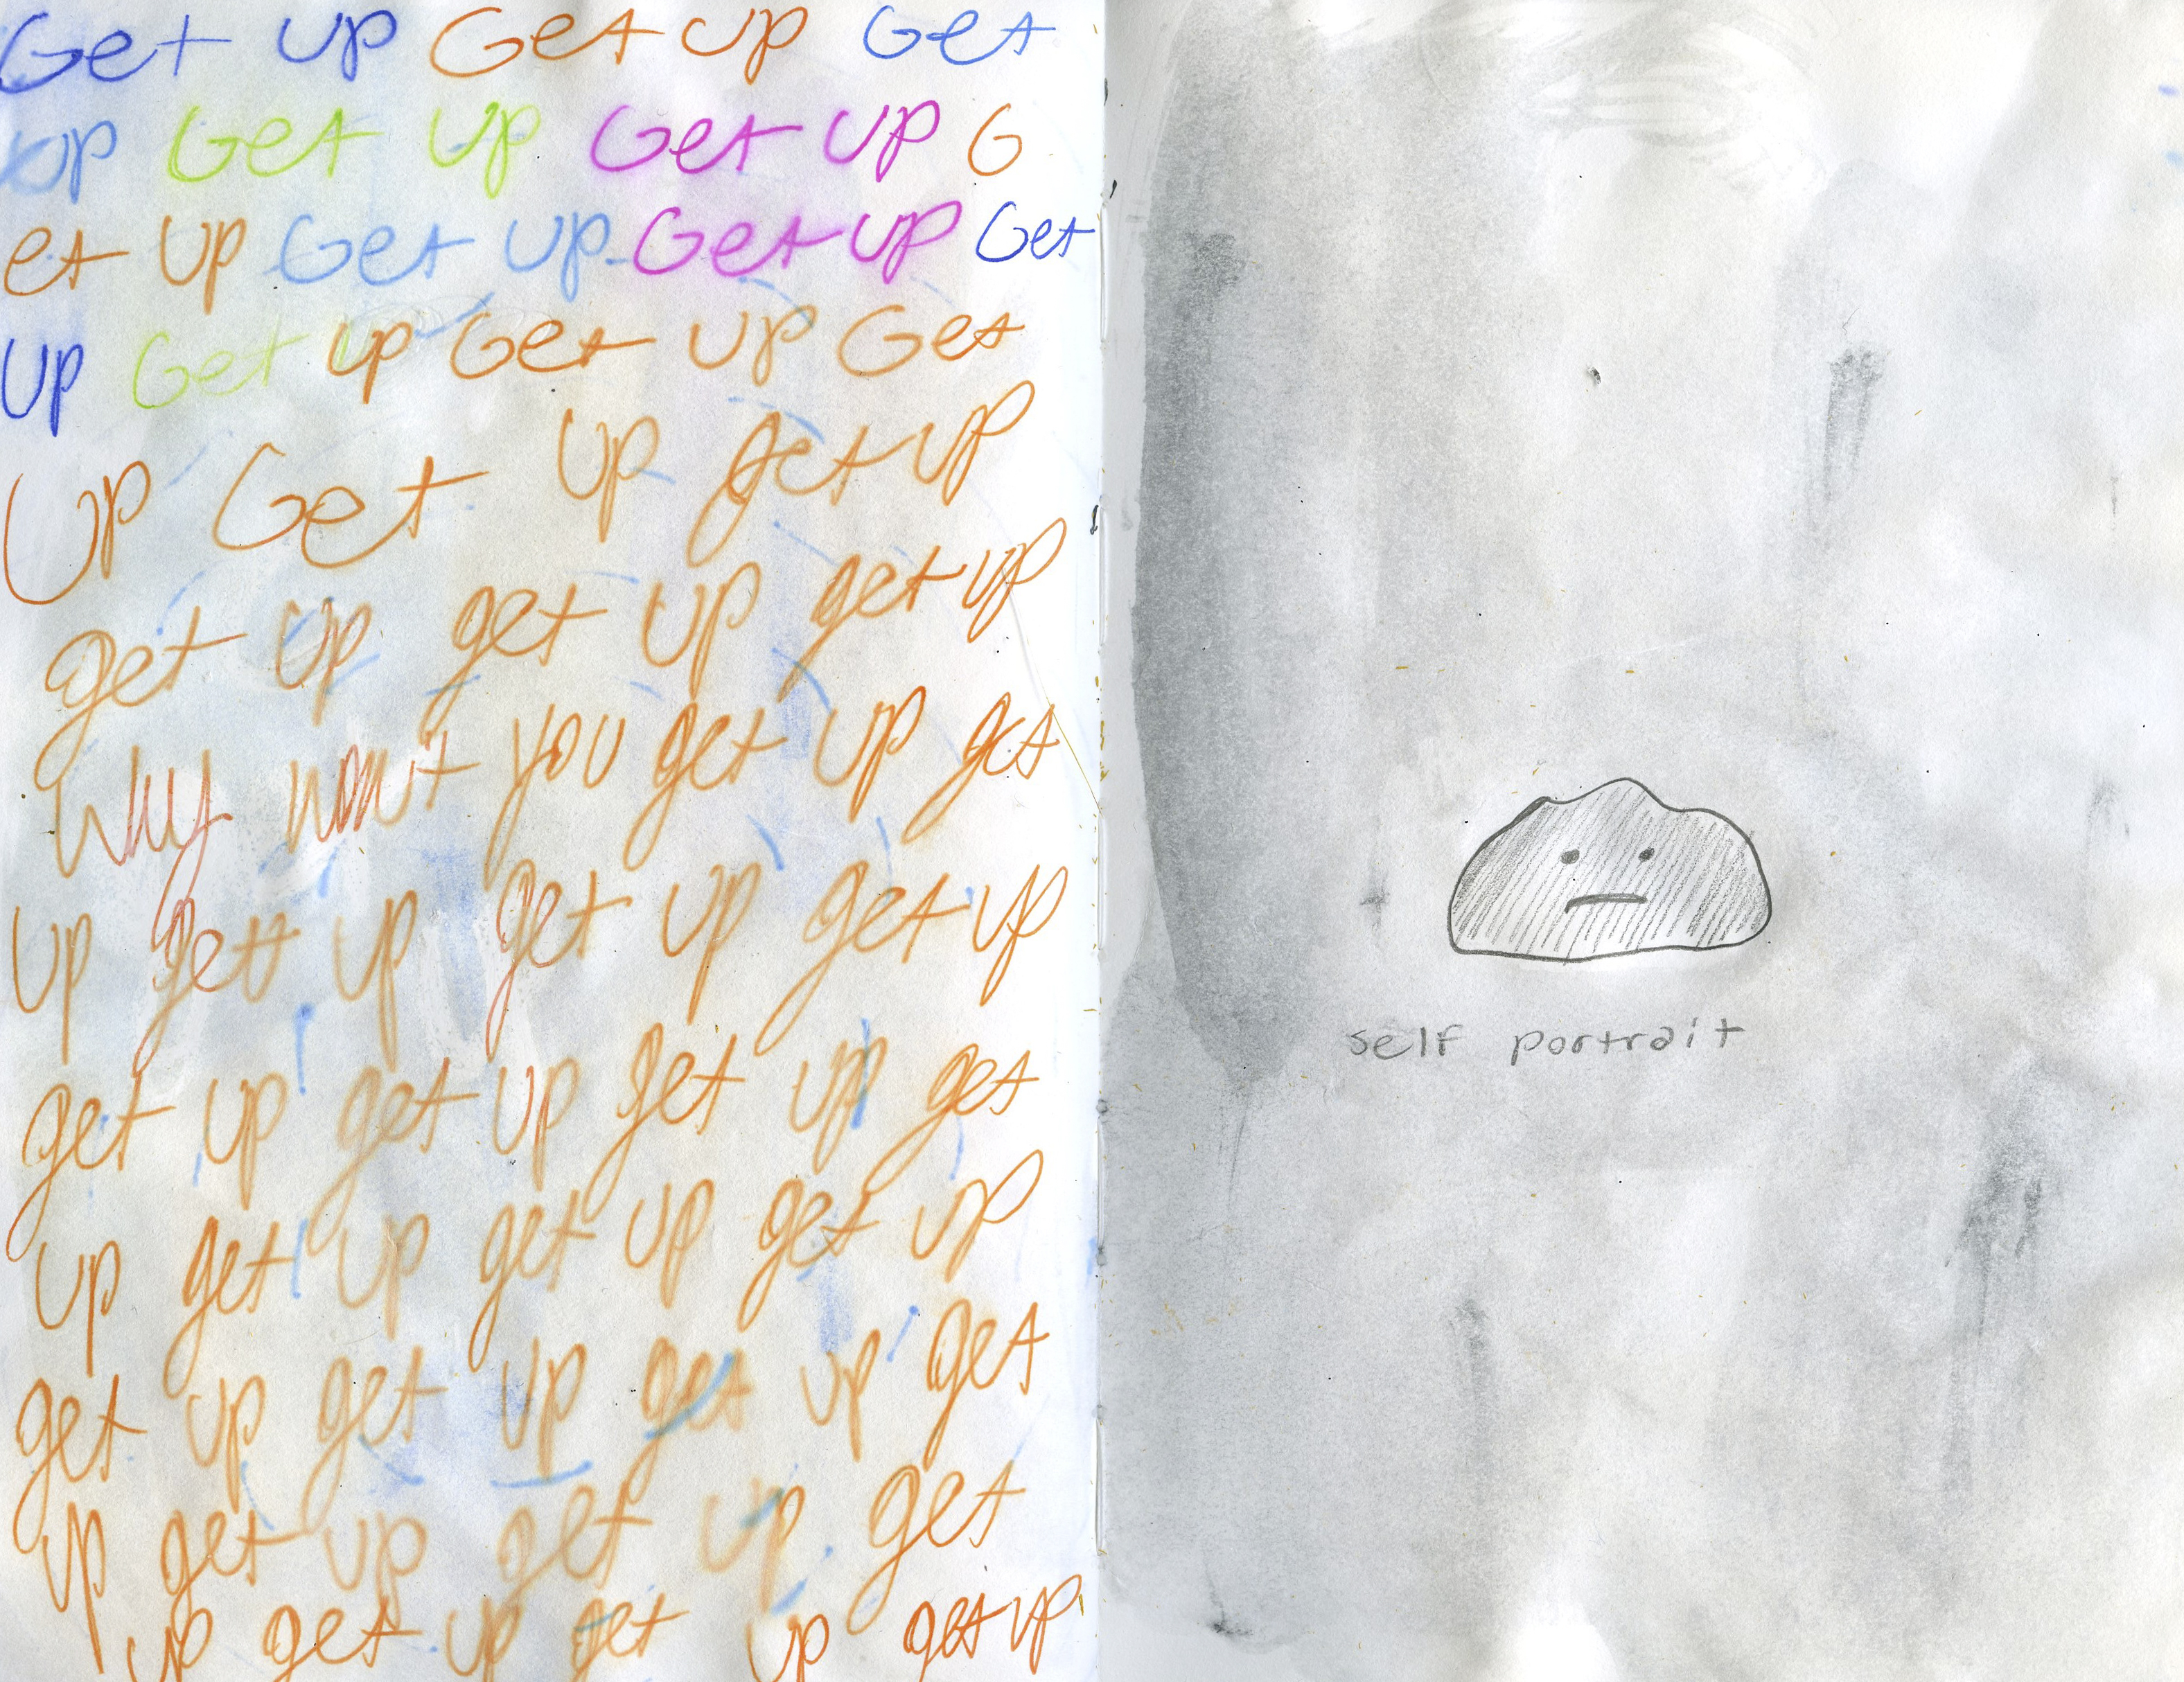 Get up Get up Get
up Get up Get up G
et up Get up Get up Get
up Get up Get up Get
Up Get up get up
get up get up get up
Why won't you get up get
up get up get up get up
get up get up get up get
up get up get up get up
get up get up get up get
up get up get up get
up get up get up get up
self portrait